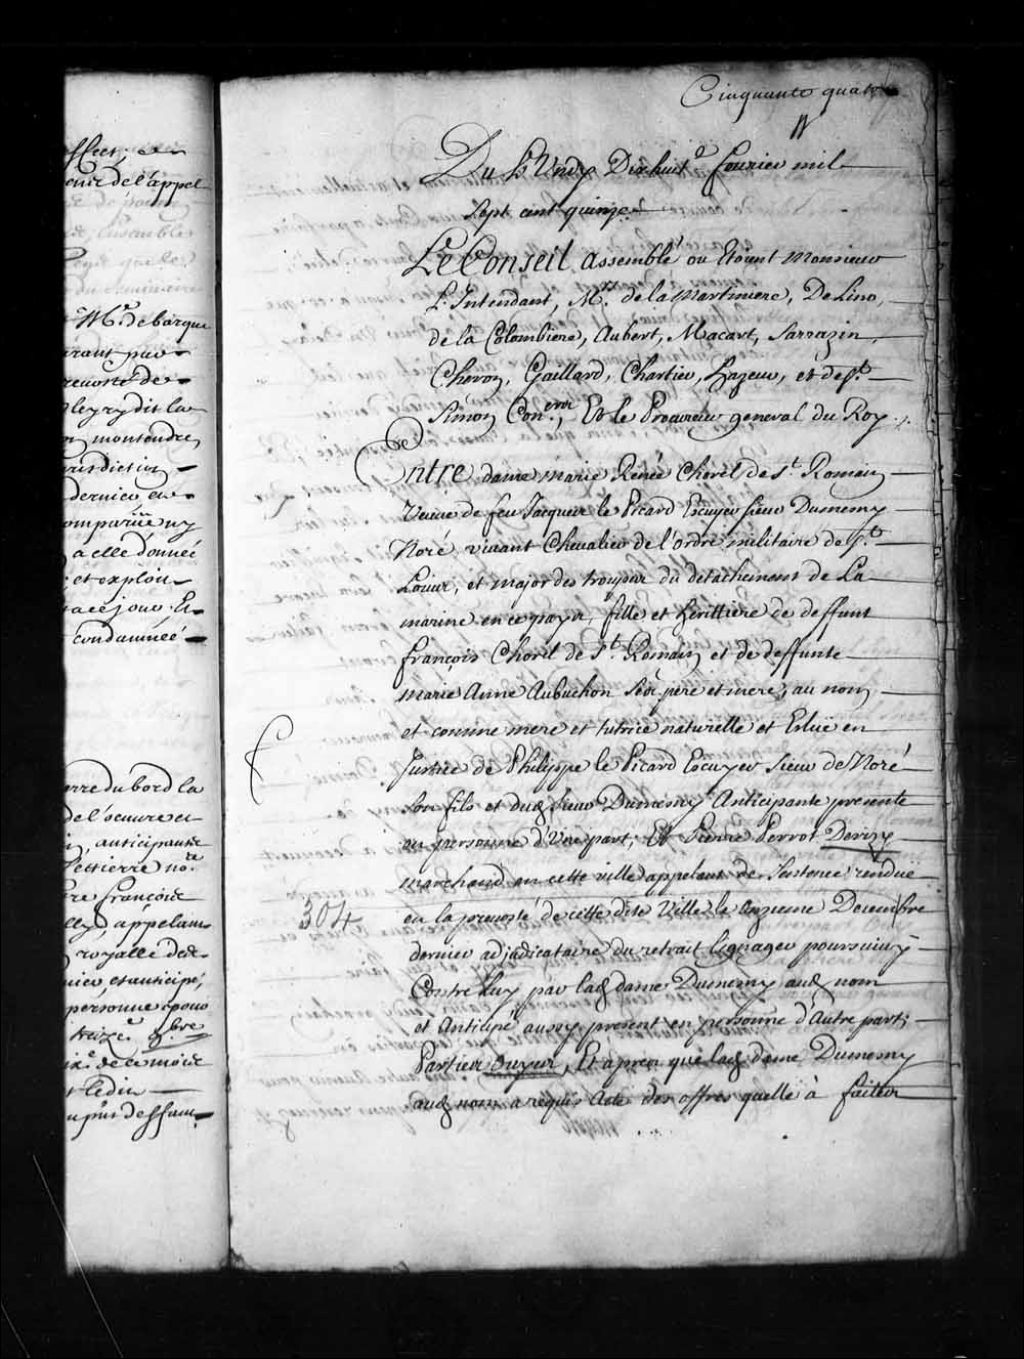 ffect, et
de l'appel
l'ensemble
Mr. de barque
dit la
montendre,
jurisdiction
dernier en
comparüe ny
a elle donneé
et exploit
ce jour Et
condamneé
erre du bord la
de l'oeuvre et
anticipante
re francoise
appelant
royalle de
et anticipé,
personne pour
treize 9.bre
de ce mois
Ledit
Cinquante quatre
Du Lundy Dixhuite. fevrier mil
Sept cent quinze
Le Conseil assemblé ou Etoient Monsieur
L'Intendant, Mrs. de la Martiniere, De Lino,
de la Colombiere, Aubert, Macart, Sarrazin,
Cheron, Gaillard, Chartier, Hazeur, et de St.
Simon Con.ers, Et le Procureur general du Roy ./.
Entre dame marie Renée Chorel de St. Romain
Veuve de feu Jacques le Picard Escuyer Sieur Dumesny
Noré vivant Chevalier de l'ordre militaire de St.
Louis, et major des troupes du detachement de La
marine en ce pays, fille et heritiere de deffunt
françois Chorel de St. Romain et de deffunte
marie Anne Aubuchon Ses pere et mere, au nom
et comme mere et tutrice naturelle et Esluë en
Justice de Philippe le Picard Escuyer Sieur de Noré
Son fils et dud. Sieur Dumesny Anticipante presente
en personne d'Une part; Et Pierre Perrot Derizy
marchand en cette ville appelant de Sentence rendue
304
en la prevosté de cette dite Ville le Onzieme Decembre
dernier adjudicataire du retrait lignager poursuivy
Contre Luy par lad. dame Dumesny aud. nom
et Anticipé aussy present en personne d'Autre part;
Parties ouyes, Et apres que lad. dame Dumesny
aud. nom a requis Acte des offres quelle à faittes